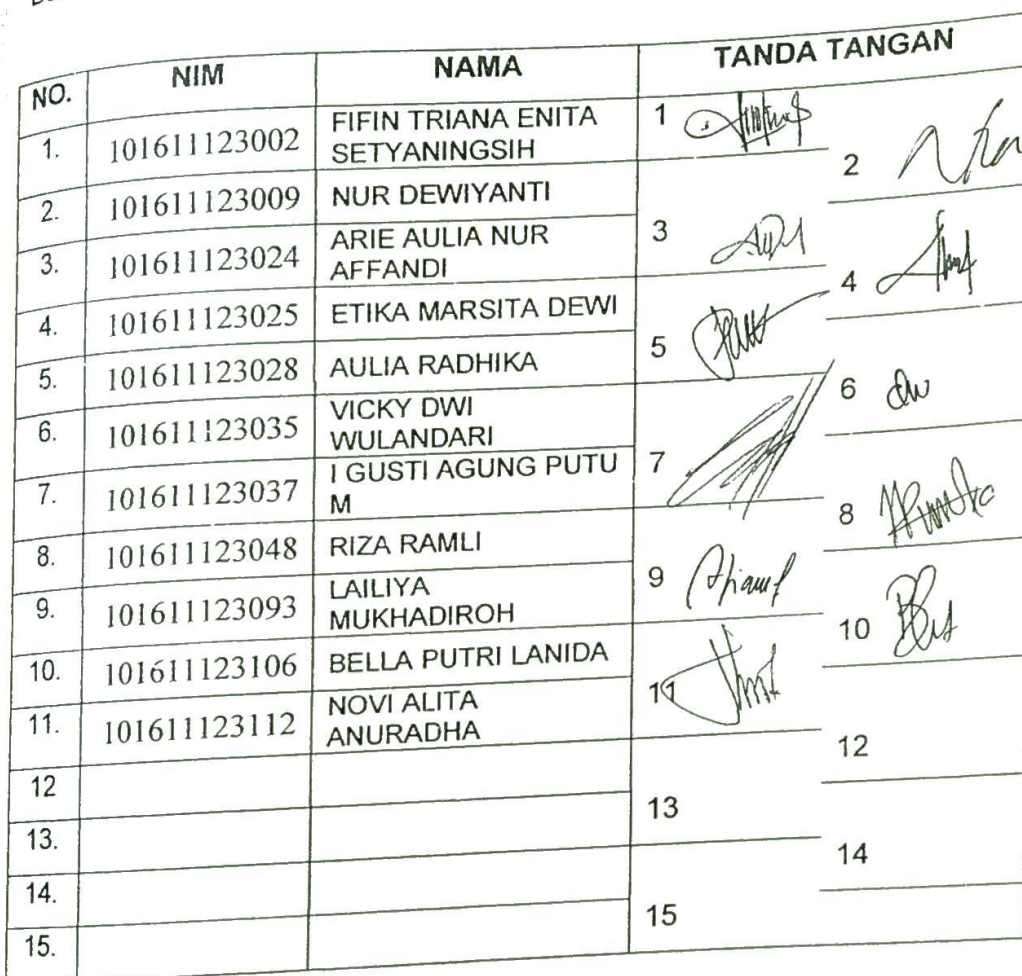 NO. NIM NAMA TANDA TANGAN
1. 101611123002 FIFIN TRIANA ENITA SETYANINGSIH 1
2. 101611123009 NUR DEWIYANTI 2
3. 101611123024 ARIE AULIA NUR AFFANDI 3
4. 101611123025 ETIKA MARSITA DEWI 4
5. 101611123028 AULIA RADHIKA 5
6. 101611123035 VICKY DWI WULANDARI 6
7. 101611123037 I GUSTI AGUNG PUTU M 7
8. 101611123048 RIZA RAMLI 8
9. 101611123093 LAILIYA MUKHADIROH 9
10. 101611123106 BELLA PUTRI LANIDA 10
11. 101611123112 NOVI ALITA ANURADHA 11
12 12
13. 13
14. 14
15. 15